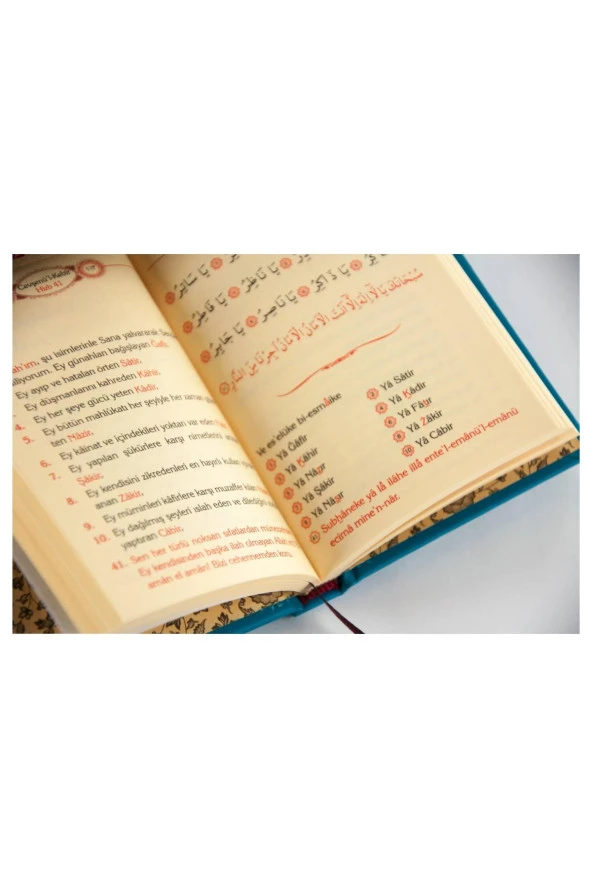 Cevşenü'l-Kebir
Hizb 41
şu isimlerinle Sana yalvararak
Ey günahları bağışlayan Ğafir,
Ey ayıp ve hataları örten Sâtir,
Ey düşmanlarını kahreden Kâhir,
4. Ey her şeye gücü yeten Kâdir,
5. Ey bütün mahlûkatı her şeyiyle her zaman
ten Nâzir,
6. Ey kâinat ve içindekileri yoktan var eden
7. Ey yapılan şükürlere karşı nimetlerini
Şâkir,
8. Ey kendisini zikredenleri en hayırlı kullar
anan Zâkir,
9. Ey müminleri kâfirlere karşı muzaffer kılan
10. Ey dağılmış şeyleri ıslah eden ve dilediğini
yaptıran Câbir,
41. Sen her türlü noksan sıfatlardan münezzeh
Ey kendisinden başka ilah olmayan Allah
amân el amân! Bizi cehennemden koru
يَا سَاتِرُ
يَا قَاهِرُ يَا قَادِرُ يَا نَاظِرُ يَا فَاطِرُ
يَا شَاكِرُ يَا ذَاكِرُ يَا نَاصِرُ يَا جَابِرُ
سُبْحَانَكَ يَا لَا إِلٰهَ إِلَّا أَنْتَ الْأَمَانُ الْأَمَانُ أَجِرْنَا مِنَ النَّارِ
Ve es'elüke bi-esmâike
Yâ Ğâfir
Yâ Kâhir
Yâ Nâzır
Yâ Şâkir
Yâ Nâsır
Yâ Sâtir
Yâ Kâdir
Yâ Fâtır
Yâ Zâkir
Yâ Câbir
Subhâneke yâ lâ ilâhe illâ ente'l-emânü'l-emânü
ecirnâ mine'n-nâr.